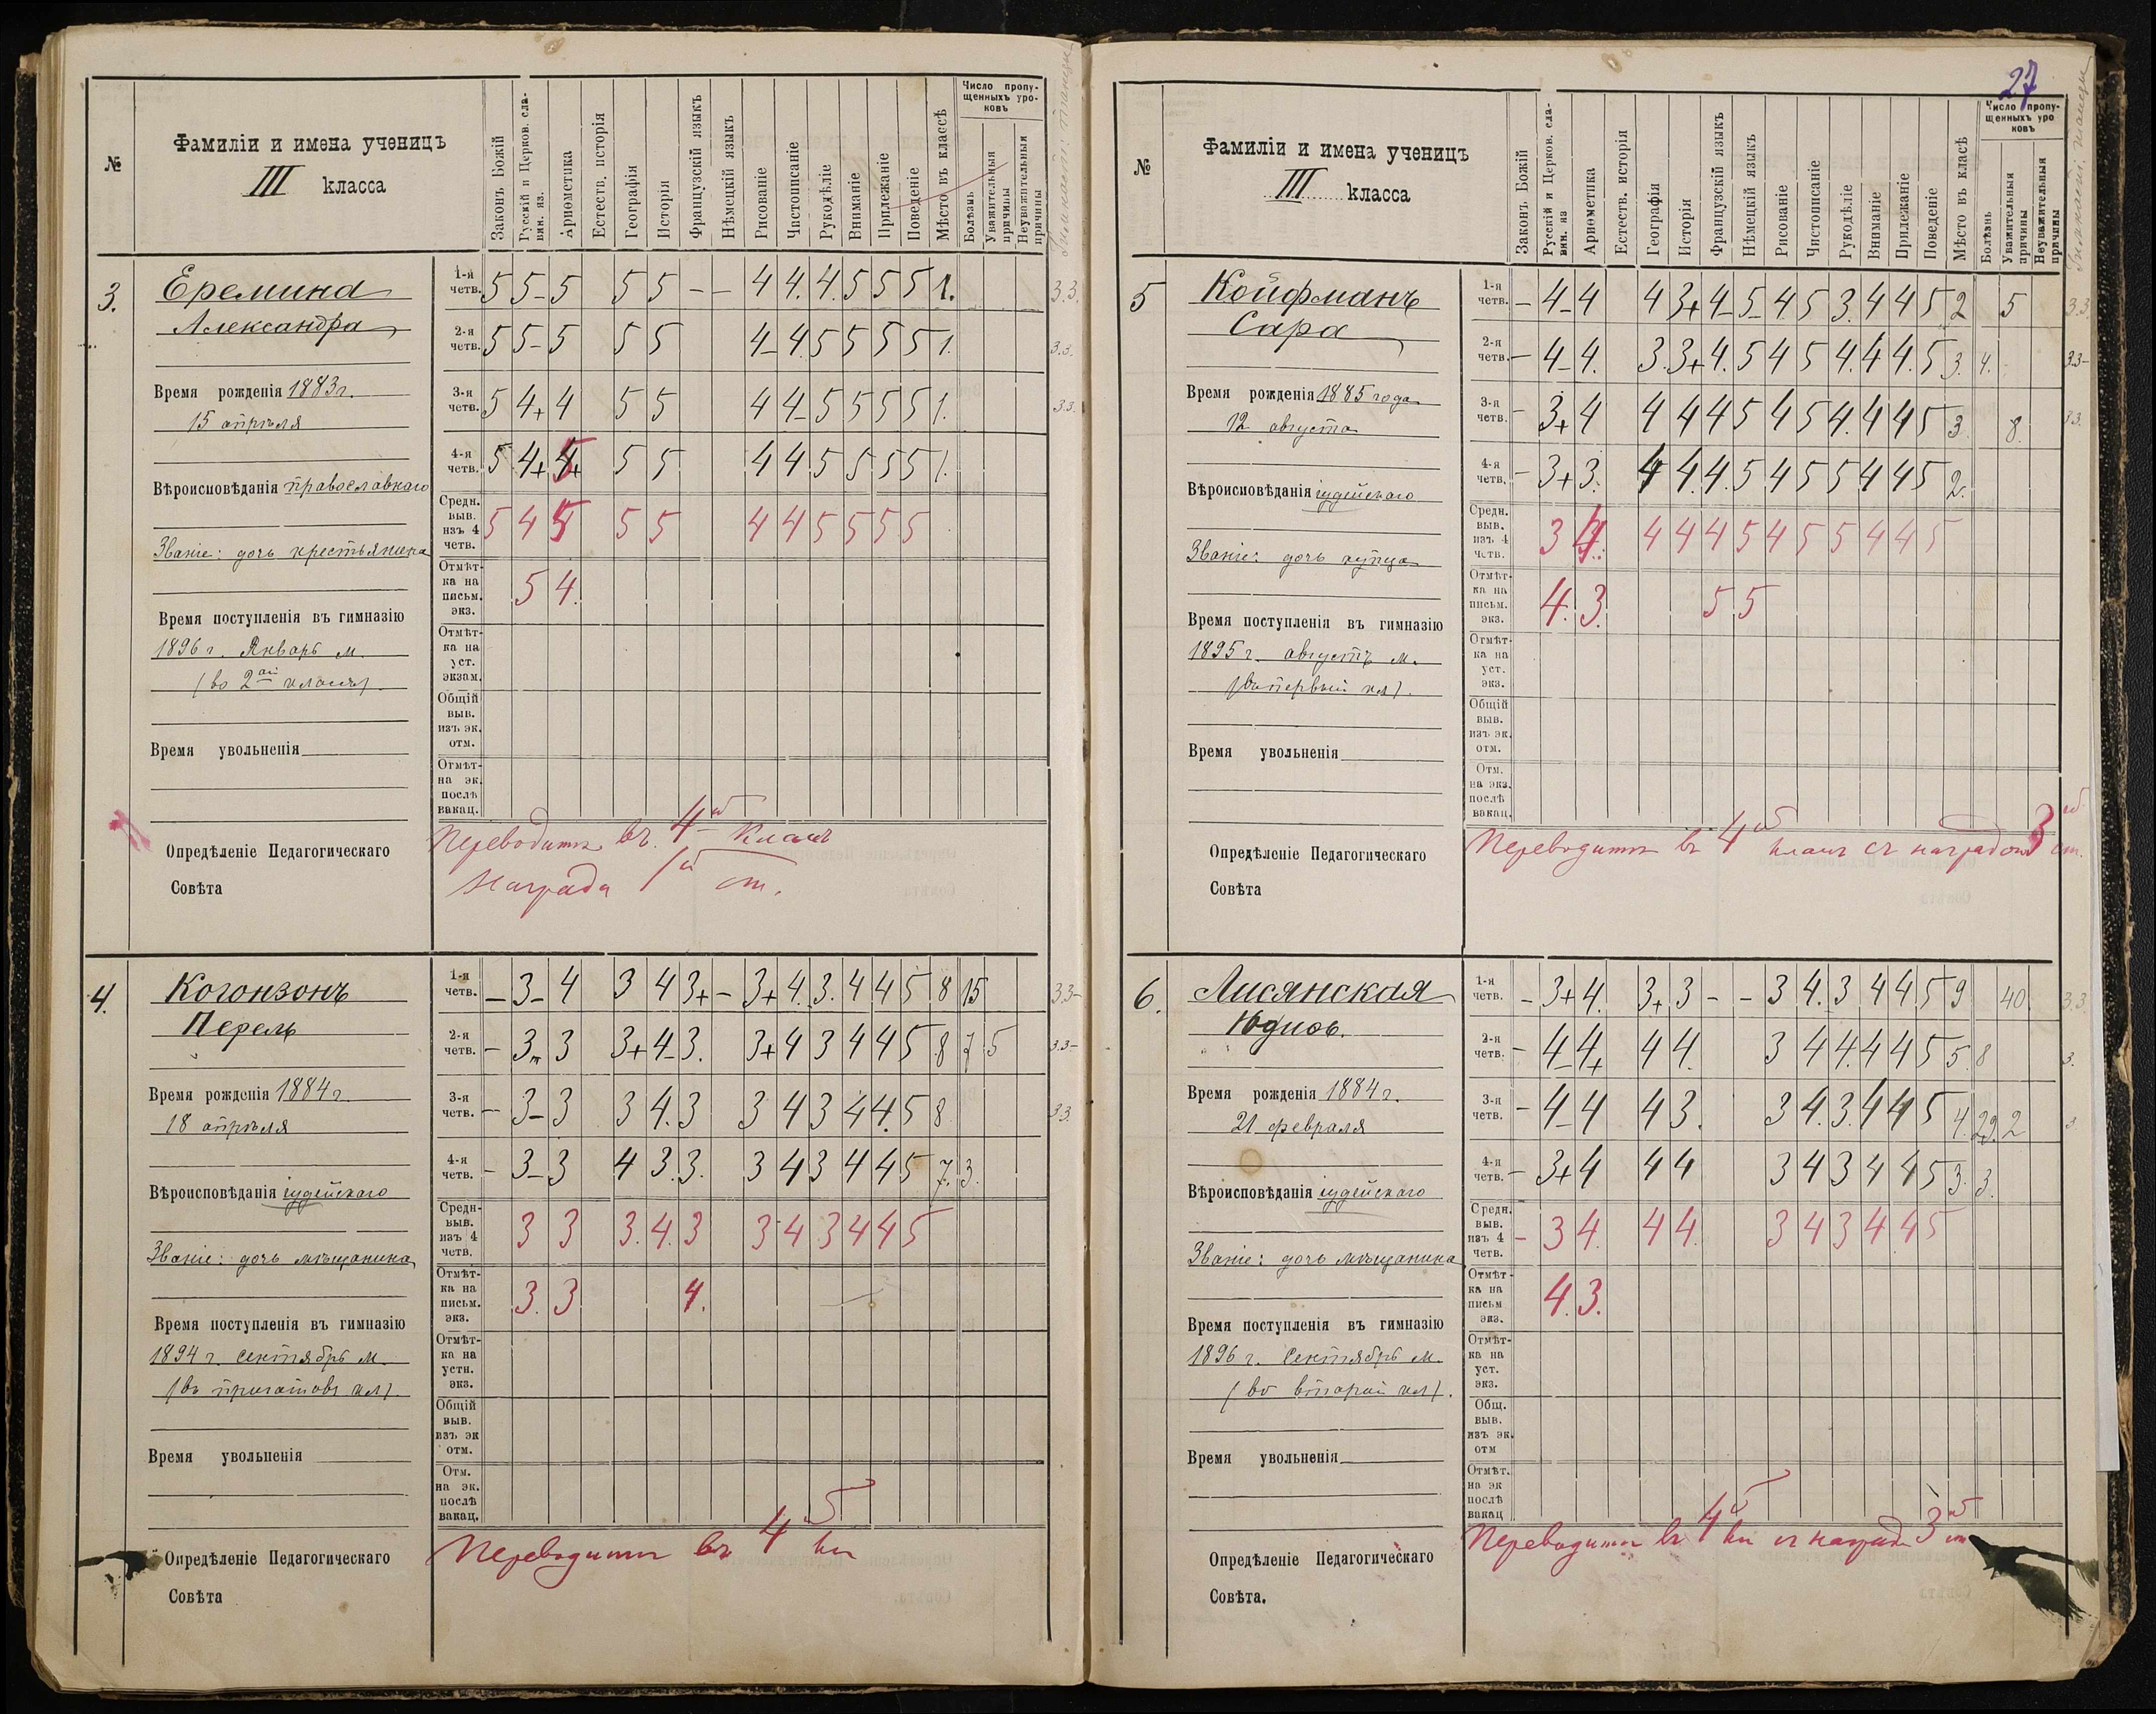 №
Фамиліи и имена ученицъ
III класса
Законъ Божій
Русскій и Церков. славян. яз.
Ариѳметика
Естеств. исторія
Географія
Исторія
Французскій языкъ
Нѣмецкій языкъ
Рисованіе
Чистописаніе
Рукодѣліе
Вниманіе
Прилежаніе
Поведеніе
Мѣсто въ классѣ
Число пропущенныхъ уроковъ
Болѣзнь
Уважительныя причины
Неуважительныя причины
3.
Еремина
Александра
Время рожденія 1883 г.
15 апрѣля
Вѣроисповѣданія православнаго
Званіе: дочь крестьянина
Время поступленія въ гимназію
1896 г. Январь м.
(во 2ой классъ).
Время увольненія
1-я четв. 5 5- 5 5 5 - - 4 4. 4. 5 5 5 1. 3.3.
2-я четв. 5 5- 5 5 5 4- 4. 5 5 5 5 1. 3.3.
3-я четв. 5 4+ 4 5 5 4 4- 5 5 5 5 1. 3.3.
4-я четв. 5 4+ 5 5 5 4 4 5 5 5 5 1.
Средн. выв. изъ 4 четв. 5 4 5 5 5 4 4 5 5 5 5
Отмѣтка на письм. экз. 5 4.
Отмѣтка на уст. экзам.
Общій выв. изъ эк. отм.
Отмѣт- на эк. послѣ вакац.
Опредѣленіе Педагогическаго
Совѣта
Переводится въ 4й классъ
Награда 1й ст.
4.
Когонзонъ
Перель
Время рожденія 1884 г.
18 апрѣля
Вѣроисповѣданія іудейскаго
Званіе: дочь мѣщанина
Время поступленія въ гимназію
1894 г. сентябрь м.
(въ приготов кл).
Время увольненія
1-я четв. - 3- 4 3 4 3+ - 3+ 4. 3. 4 4 5 8 15 3.3-
2-я четв. - 3 3 3+ 4- 3. 3+ 4 3 4 4 5 8 7 5 3.3-
3-я четв. - 3- 3 3 4. 3 3 4 3 4 4. 5 8 3.3
4-я четв. - 3- 3 4 3. 3. 3 4 3 4 4 5 7. 3.
Средн- выв. изъ 4 четв. 3 3 3. 4. 3 3 4 3 4 4 5
Отмѣтка на письм. экз. 3. 3 4.
Отмѣтка на устн. экз.
Общій выв. изъ эк отм.
Отм. на эк. послѣ вакац.
Опредѣленіе Педагогическаго
Совѣта
Переводится въ 4й кл
27
№
Фамиліи и имена ученицъ
III класса
Законъ Божій
Русскій и Церков. славян. яз
Ариѳметика
Естеств. исторія
Географія
Исторія
Французскій языкъ
Нѣмецкій языкъ
Рисованіе
Чистописаніе
Рукодѣліе
Вниманіе
Прилежаніе
Поведеніе
Мѣсто въ класѣ
Число пропущенныхъ уроковъ
Болѣзнь
Уважительныя причины
Неуважительныя причины
5
Койфманъ
Сара
Время рожденія 1885 года
12 августа
Вѣроисповѣданія іудейскаго
Званіе: дочь купца
Время поступленія въ гимназію
1895 г. августъ м.
(въ первый кл).
Время увольненія
1-я четв. - 4- 4 4 3+ 4- 5- 4 5 3. 4 4 5 2 5 3.3.
2-я четв. - 4- 4. 3. 3+ 4. 5 4 5 4. 4. 4. 5 3. 4. 3.3-
3-я четв. - 3+ 4 4 4 4 5 4 5 4. 4 4 5 3 8. 3.3.
4-я четв. - 3+ 3. 4 4. 4. 5 4 5 5 4 4 5 2.
Средн. выв. изъ 4 четв. 3 4. 4 4 4 5 4 5 5 4 4 5
Отмѣтка на письм. экз. 4. 3. 5 5
Отмѣтка на уст. экз.
Общій выв. изъ эк. отм.
Отм. на экз. послѣ вакац.
Опредѣленіе Педагогическаго
Совѣта
Переводится въ 4й классъ съ наградою 3й ст.
6.
Лисянская
Юдись.
Время рожденія 1884 г.
21 февраля
Вѣроисповѣданія іудейскаго
Званіе: дочь мѣщанина
Время поступленія въ гимназію
1896 г. Сентябрь м.
(во второй кл).
Время увольненія
1-я четв. - 3+ 4. 3+ 3 - - 3 4. 3 4 4 5 9 40. 3.3
2-я четв. - 4- 4+ 4 4. 3 4 4. 4 4 5 5. 8 3.
3-я четв. - 4- 4 4 3. 3 4. 3. 4 4 5 4. 29. 2 3
4-я четв. - 3+ 4 4 4 3 4 3 4 4 5 3. 3.
Средн. выв. изъ 4 четв. - 3 4. 4 4. 3 4 3 4 4 5
Отмѣтка на письм экз. 4. 3.
Отмѣтка на уст. экз.
Общ. выв. изъ эк. отм
Отмѣт. на эк послѣ вакац
Опредѣленіе Педагогическаго
Совѣта.
Переводится въ 4й кл съ наград 3й ст